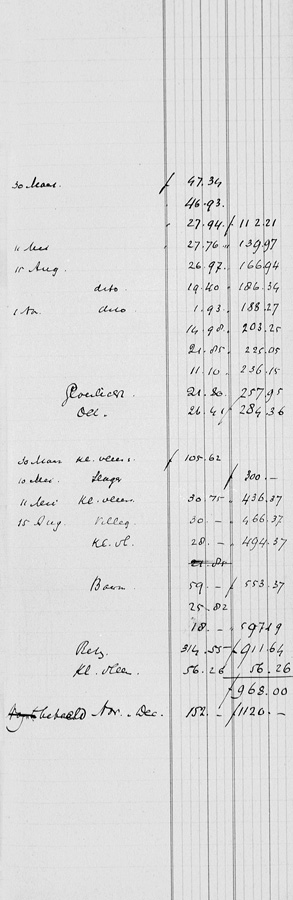 30 Maart. f 47.34
46.93.
27.94. f 112.21
11 Mei 27.76 " 139.97
15 Aug. 26.97. " 166.94
dito 19.40 " 186.34
1 Nov. dito 1.93. " 188.27
14.98. " 203.25
21.85. " 225.05
11.10. " 236.15
21.80. " 257.95
Oct. 26.41 f 284.36
30 Maart Kl. vleesch f 105.62
10 Mei Slager f 300.—
11 Mei Kl. vleesch 30.75 " 436.37
15 Aug. 30.— " 466.37
Kl. vl. 28.— " 494.37
21.85
59.— f 553.37
25.82
18.— " 597.19
314.55 f 911.64
Kl. vleesch 56.26 56.26
f 968.00
betaald Nov. Dec. 152.— f 1120.—